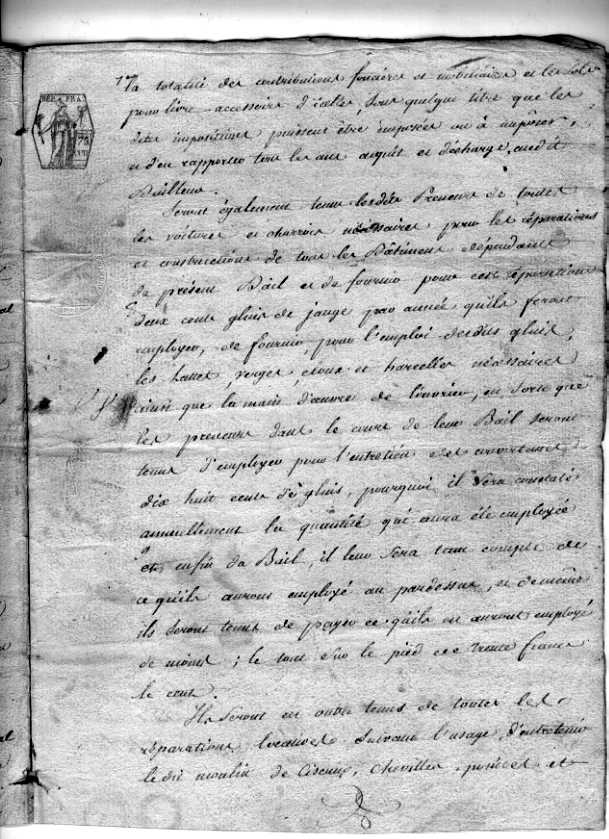 REP. FRA.
75
17 la totalité des contributions foncières et mobiliaires et les sols
pour livre accessoire d'icelles, sous quelque titre que les
dites impositions puissent être imposées ou à imposer,
et d'en rapporter tous les ans acquit et décharge, audit
Bailleur.
Seront également tenus lesdits Preneurs de toutes
les voitures et charrois nécessaires pour les réparations
et constructions de tous les Bâtimens dépendants
de présent Bail et de fournir pour ces réparations
deux cents gluis de jauge par année qu'ils feront
employer, de fournir, pour l'emploi desdits gluis,
les lattes, verges, cloux et harcelles nécessaires
ainsi que la main d'œuvre de l'ouvrier, en sorte que
les preneurs dans le cours de leur Bail seront
tenus d'employer pour l'entretien des couvertures
dix huit cents de gluis, pourquoi il sera constaté
annuellement la quantité qui aura été employée
et, enfin du Bail, il leur sera tenu compte de
ce qu'ils auront employé au pardessus, et de même
ils seront tenus de payer ce qu'ils en auront employé
de moins ; le tout sur le pied de trente francs
le cent.
Ils seront en outre tenus de toutes les
réparations locatives suivant l'usage, d'entretenir
le dit moulin de Ciseaux, Chevilles, et